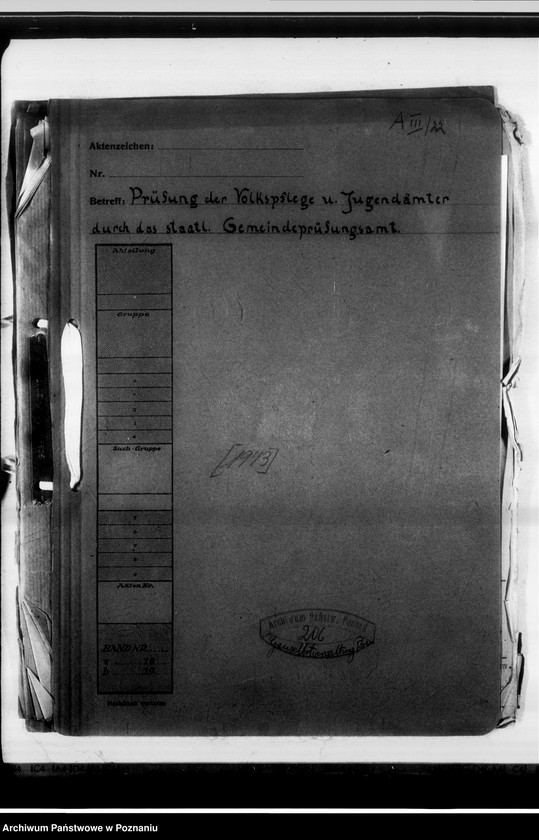 A III/22
Aktenzeichen:
Nr.
Betreff: Prüfung der Volkspflege u. Jugendämter
durch das staatl. Gemeindeprüfungsamt.
Abteilung
Gruppe
Sach-Gruppe
[1943]
Akten Nr.
BAND NR.
v. 19
b. 19
Archiwum Państw. Poznań
206
Archiwum Państwowe w Poznaniu